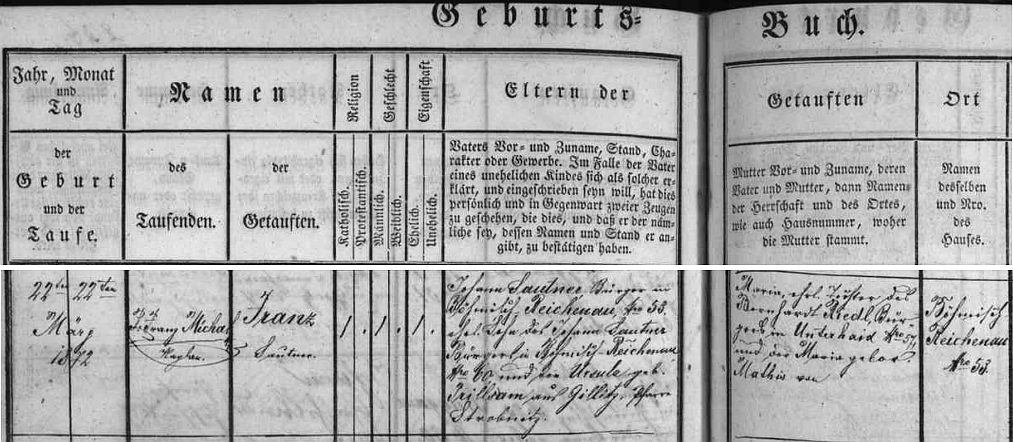 Geburts-Buch.
Jahr, Monat
und
Tag
der
Geburt
und der
Taufe.
Namen
des
Taufenden.
der
Getauften.
Religion
Katholisch.
Protestantisch.
Geschlecht
Männlich.
Weiblich.
Eigenschaft
Ehelich.
Unehelich.
Eltern der
Vaters Vor- und Zuname, Stand, Cha-
rakter oder Gewerbe. Im Falle der Vater
eines unehelichen Kindes sich als solcher er-
klärt, und eingeschrieben seyn will, hat dies
persönlich und in Gegenwart zweier Zeugen
zu geschehen, die dies, und daß er der näm-
liche sey, dessen Namen und Stand er an-
gibt, zu bestätigen haben.
Getauften
Mutter Vor- und Zuname, deren
Vater und Mutter, dann Namen
der Herrschaft und des Ortes,
wie auch Hausnummer, woher
die Mutter stammt.
Ort
Namen
desselben
und Nro.
des
Hauses.
22ten 22ten
März
1872
Michael
Kaplan.
Franz
Lautner.
/. /. /.
Johann Lautner Bürger in
Böhmisch Reichenau, Nro 53.
ehel. Sohn des Johann Lautner
Bürgers in Böhmisch-Reichenau
Nro 60 und der Ursula geb.
Trillsam aus Gillitz, Pfarre
Strobnitz.
Maria, ehel. Tochter des
Bernhardt Riedl, Bür-
gers in Unterhaid Nro 57,
und der Maria gebor.
Mathis von
Böhmisch
Reichenau
Nro 53.